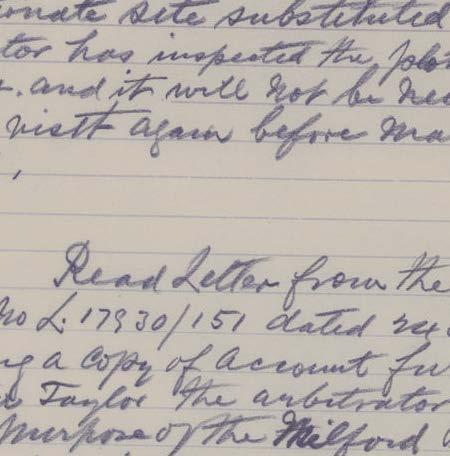 ornate site substituted
tor has inspected the plot
. and it will not be nec
visit again before ma
,
Read Letter from the
No L. 17930/151 dated
ng a copy of account fu
Taylor the arbitrator
purpose of the Milford